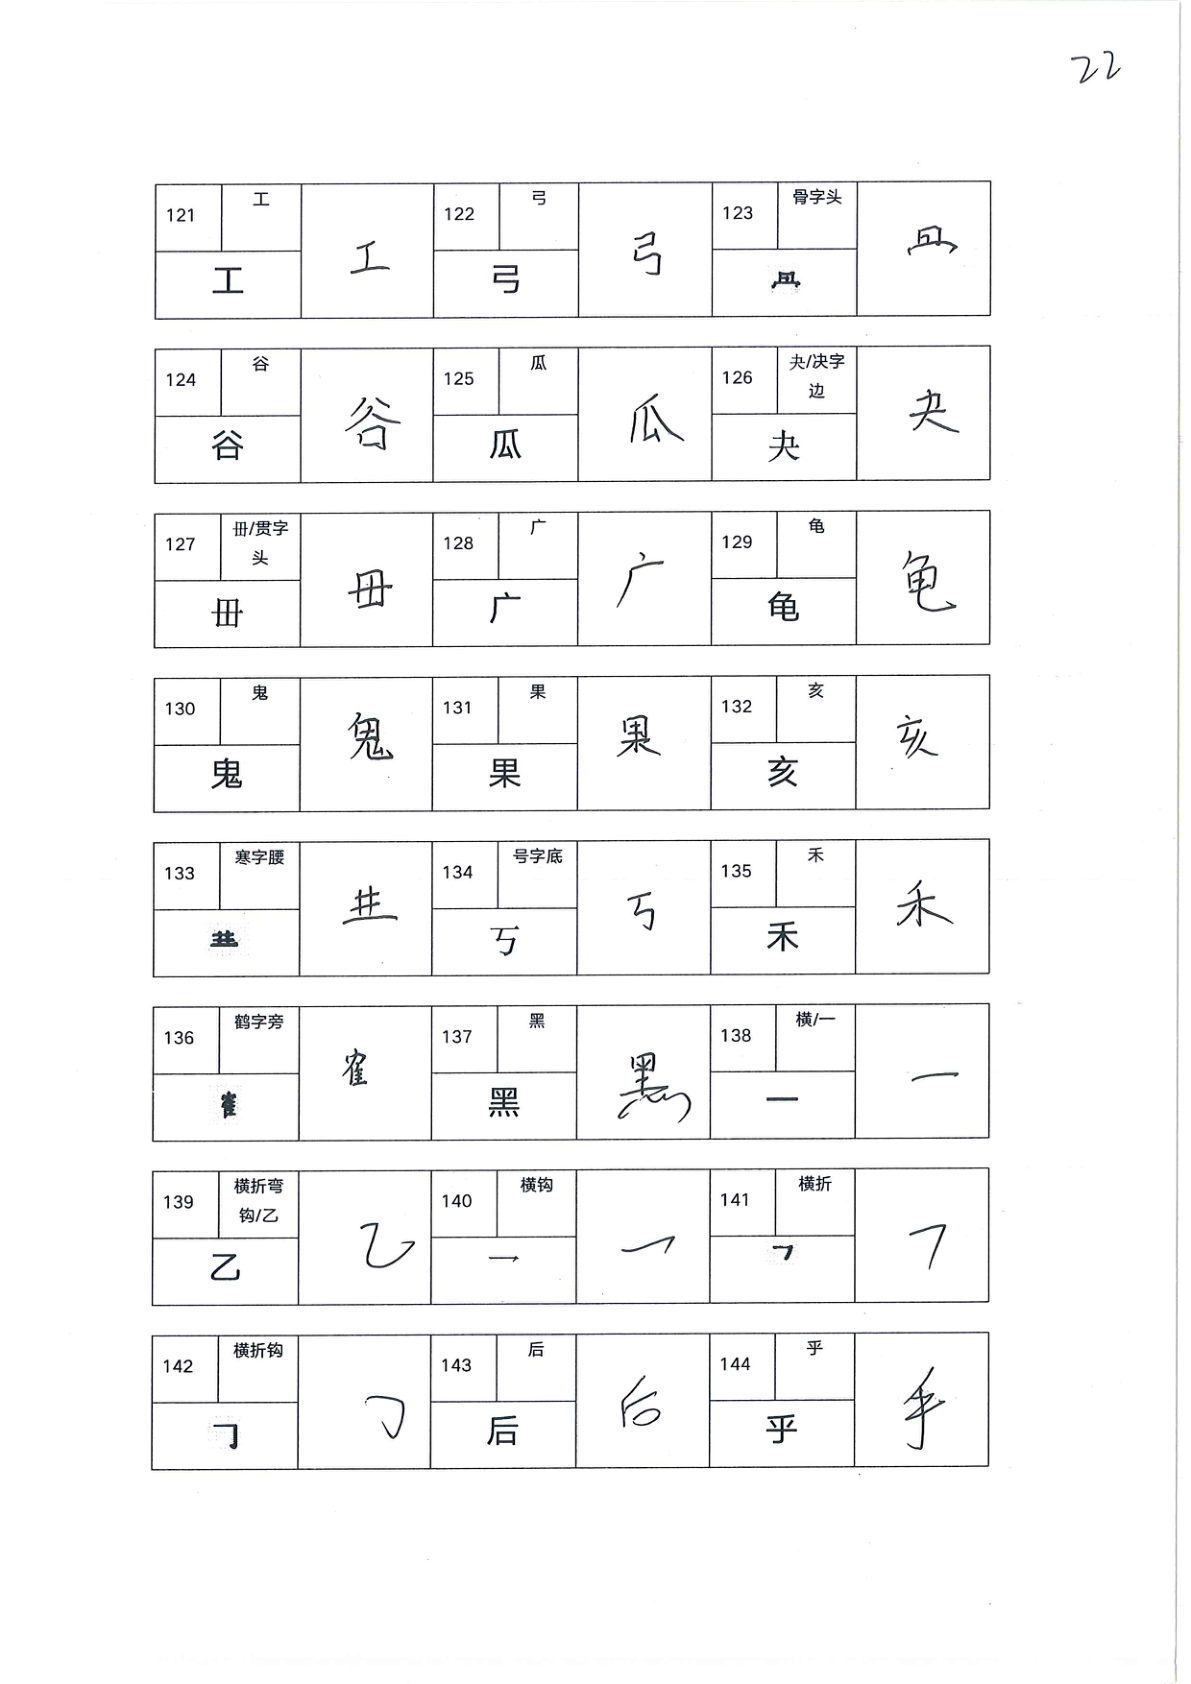 22
121 工 工 122 弓 弓 123 骨字头
工 弓
124 谷 谷 125 瓜 瓜 126 夬/决字边 夬
谷 瓜 夬
127 毌/贯字头 毌 128 广 广 129 龟 龟
毌 广 龟
130 鬼 鬼 131 果 果 132 亥 亥
鬼 果 亥
133 寒字腰 134 号字底 丂 135 禾 禾
丂 禾
136 鹤字旁 隺 137 黑 黑 138 横/一 一
隺 黑 一
139 横折弯钩/乙 乙 140 横钩 乛 141 横折 ㇕
乙 乛 ㇕
142 横折钩 ㇆ 143 后 后 144 乎 乎
㇆ 后 乎